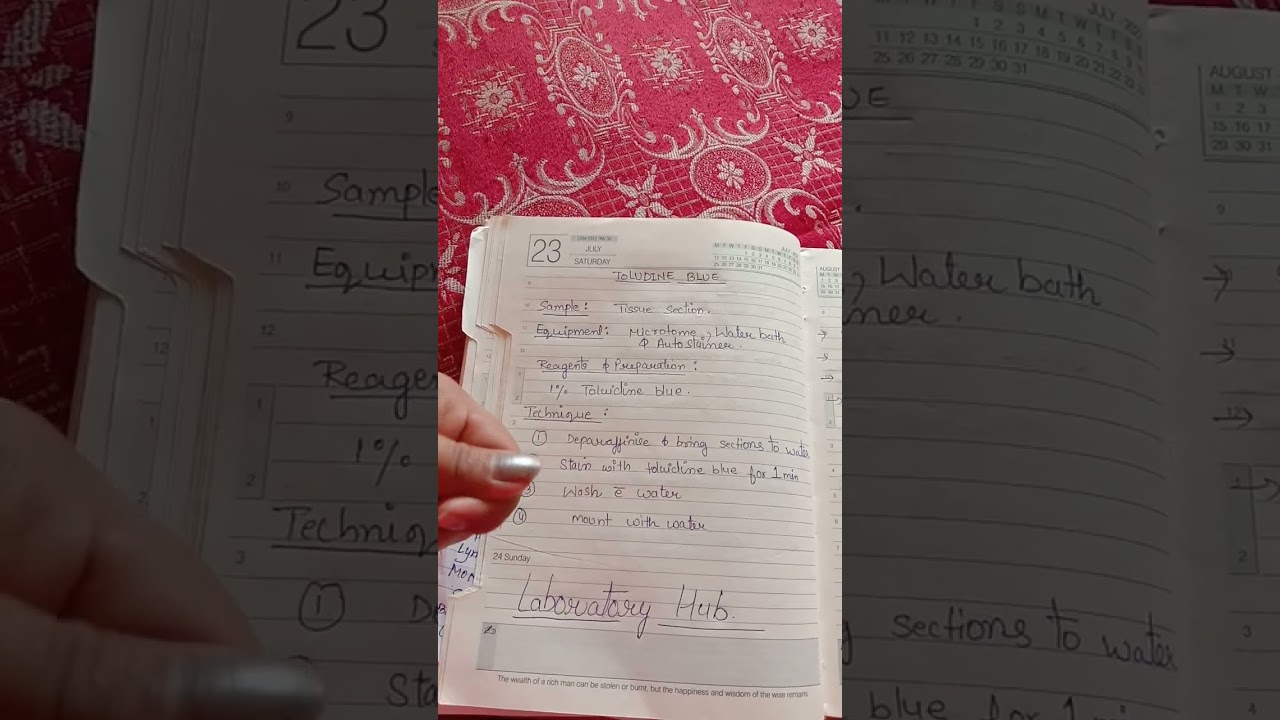 23
JULY
SATURDAY
TOLUDINE BLUE
Sample: Tissue section.
Equipment: Microtome, Water bath
& Autostainer.
Reagents & Preparation:
1% Toluidine blue.
Technique:
① Deparaffinise & bring sections to water
Stain with toluidine blue for 1 min
③ Wash c̄ water
④ mount with water
24 Sunday
Laboratory Hub.
The wealth of a rich man can be stolen or burnt, but the happiness and wisdom of the wise remains